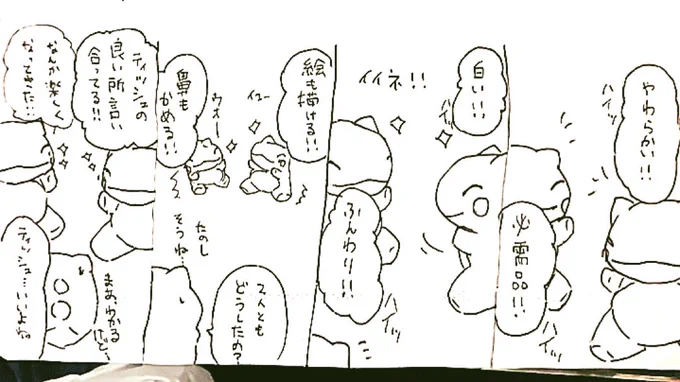 やわらかい!!
ハイッ
必需品!!
ハイッ
白い!!
ハイッ
イイネ!!
ふんわり!!
ハイッ
絵も
描ける!!
イエー
鼻も
かめる!!
ウオー
2人とも
どうしたの?
たのし
そうね…
ティッシュの
良い所言い
合ってる!!
なんか楽しく
なってきた…
まぁ、わかる
けど、
ティッシュ…いいよね